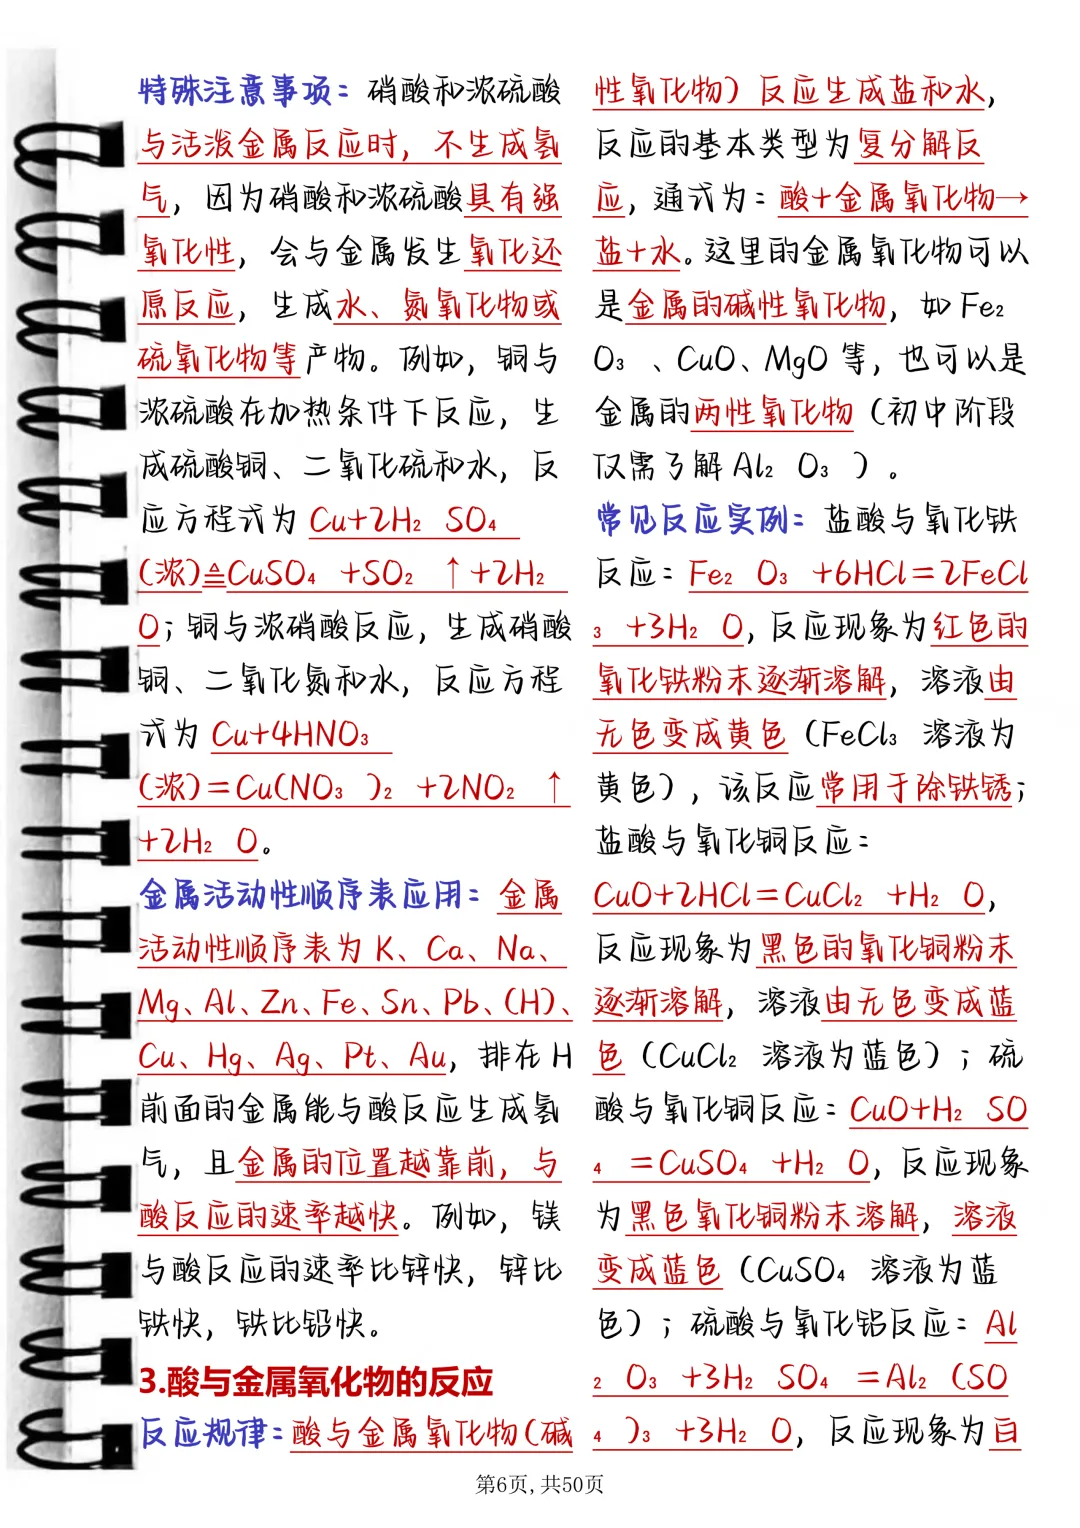 特殊注意事项：硝酸和浓硫酸
与活泼金属反应时，不生成氢
气，因为硝酸和浓硫酸具有强
氧化性，会与金属发生氧化还
原反应，生成水、氮氧化物或
硫氧化物等产物。例如，铜与
浓硫酸在加热条件下反应，生
成硫酸铜、二氧化硫和水，反
应方程式为 Cu+2H₂ SO₄
(浓)≜CuSO₄ +SO₂ ↑+2H₂
O；铜与浓硝酸反应，生成硝酸
铜、二氧化氮和水，反应方程
式为 Cu+4HNO₃
(浓)=Cu(NO₃ )₂ +2NO₂ ↑
+2H₂ O。
金属活动性顺序表应用：金属
活动性顺序表为 K、Ca、Na、
Mg、Al、Zn、Fe、Sn、Pb、(H)、
Cu、Hg、Ag、Pt、Au，排在 H
前面的金属能与酸反应生成氢
气，且金属的位置越靠前，与
酸反应的速率越快。例如，镁
与酸反应的速率比锌快，锌比
铁快，铁比铅快。
3.酸与金属氧化物的反应
反应规律：酸与金属氧化物（碱
性氧化物）反应生成盐和水，
反应的基本类型为复分解反
应，通式为：酸+金属氧化物→
盐+水。这里的金属氧化物可以
是金属的碱性氧化物，如 Fe₂
O₃ 、CuO、MgO 等，也可以是
金属的两性氧化物（初中阶段
仅需了解 Al₂ O₃ ）。
常见反应实例：盐酸与氧化铁
反应：Fe₂ O₃ +6HCl=2FeCl
₃ +3H₂ O，反应现象为红色的
氧化铁粉末逐渐溶解，溶液由
无色变成黄色（FeCl₃ 溶液为
黄色），该反应常用于除铁锈；
盐酸与氧化铜反应：
CuO+2HCl=CuCl₂ +H₂ O，
反应现象为黑色的氧化铜粉末
逐渐溶解，溶液由无色变成蓝
色（CuCl₂ 溶液为蓝色）；硫
酸与氧化铜反应：CuO+H₂ SO
₄ =CuSO₄ +H₂ O，反应现象
为黑色氧化铜粉末溶解，溶液
变成蓝色（CuSO₄ 溶液为蓝
色）；硫酸与氧化铝反应：Al
₂ O₃ +3H₂ SO₄ =Al₂ (SO
₄ )₃ +3H₂ O，反应现象为白
第6页,共50页